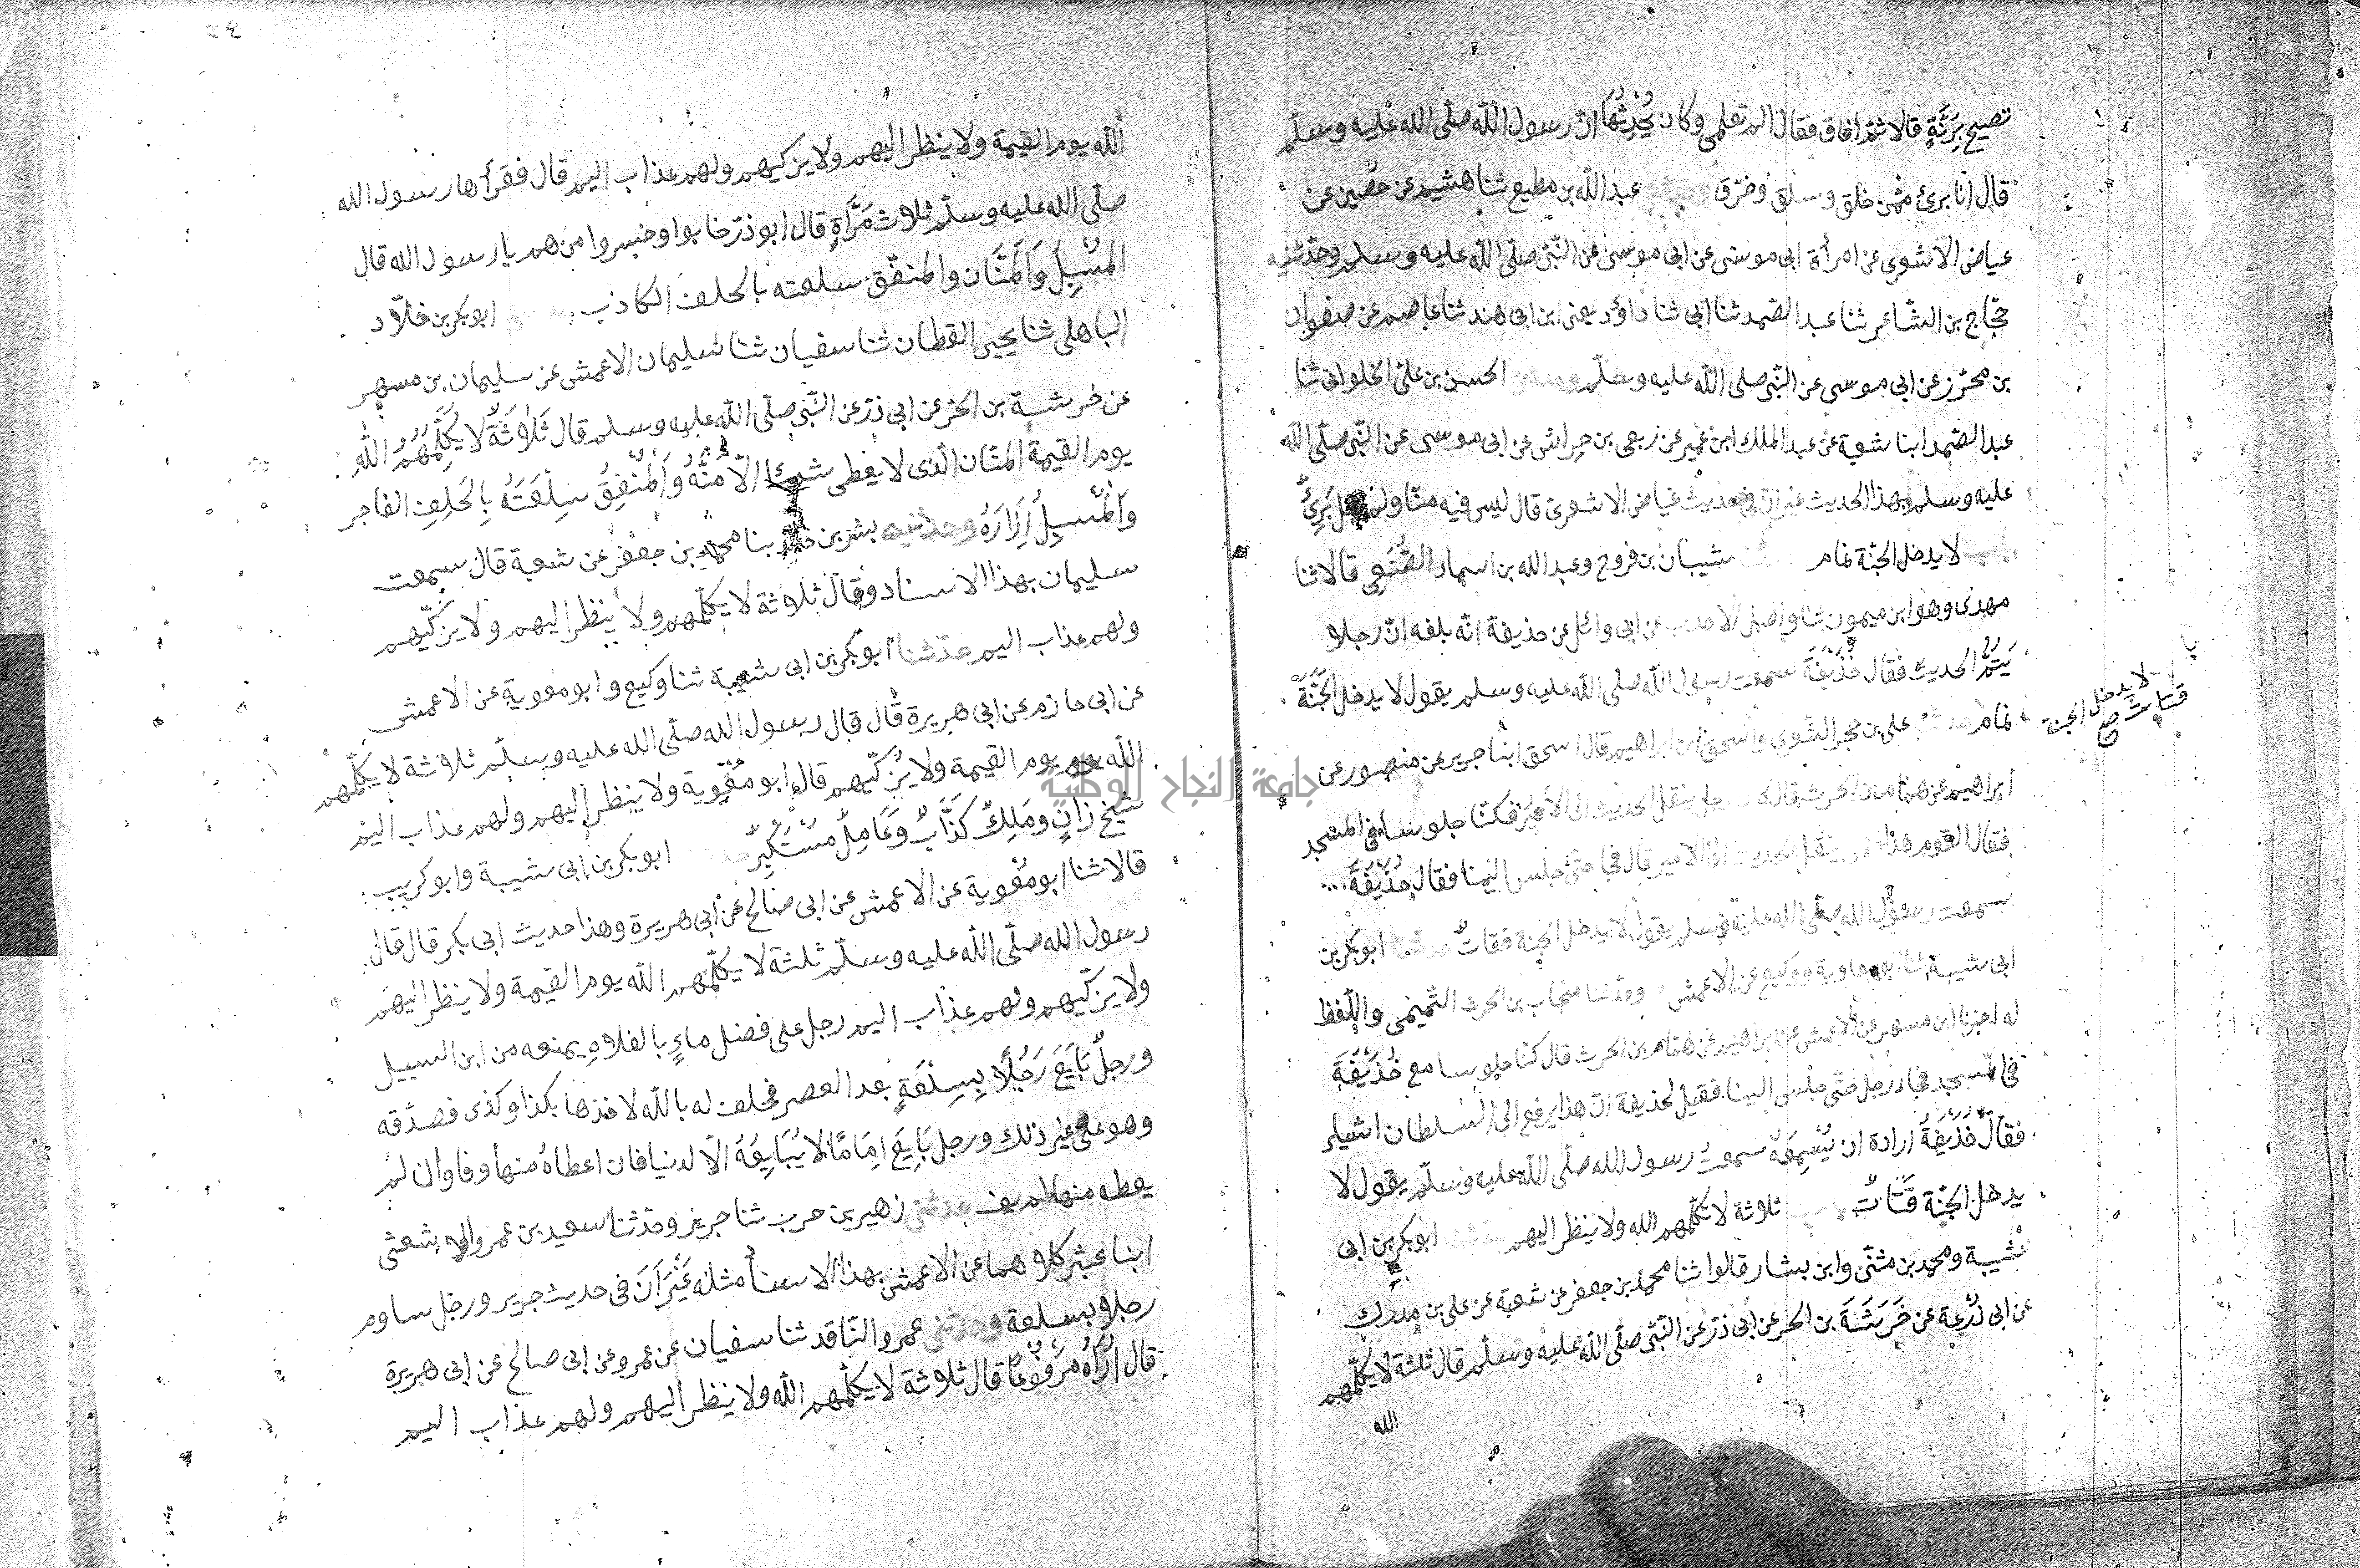 تصيح برَنَّةٍ قالا ثمّ افاق فقال الم تعلمى وكان يُحَدِّثُهَا انّ رسول الله صلّى الله عليه وسلّم
قال انا برئ ممّن حَلق وسلق وخرق عبد الله بن مطيع ثنا هشيم عن حصين عن
عياض الاشعرى عن امرأة ابى موسى عن ابى موسى عن النّبىّ صلّى الله عليه وسلم وحدّثنيه
حجّاج بن الشاعر ثنا عبد الصّمد ثنا ابى ثنا داؤد يعنى ابن ابى هند ثنا عاصم عن صفوان
بن محرز عن ابى موسى عن النّبى صلى الله عليه وسلّم وحدثنى الحسن بن علىّ الحلوانى ثنا
عبد الصّمد ابنا شعبة عن عبد الملك ابن عمير عن ربعى بن حِراش عن ابى موسى عن النّبى صلّى الله
عليه وسلم بهذا الحديث غير انّ فى حديث عياض الاشعرىّ قال ليس منّا ولم يقل بَرِئٌ
لا يدخل الجنّة نمام شيبان بن فروح وعبد الله بن اسماء الضُّبَعى قالا ثنا
مهدى وهو ابن ميمون ثنا واصل الاحدب عن ابى وائل عن حذيفة انّه بلغه انّ رجلا
يَنُمُّ الحديث فقال حُذَيْفَةَ سمعت رسول الله صلى الله عليه وسلم يقول لا يدخل الجَنَّةَ
نمام علىّ بن حجر السّعدى واسحق ابن ابراهيم قال اسحق ابنا جرير عن منصور عن
ابراهيم عن همّام بن الحرث قال كان رجل ينقل الحديث الى الأمير فكنّا جلوسا فى المسجد
فقال القوم هذا ممن ينقل الحديث الى الامير قال فجا حتّى جلس الينا فقال حُذَيْفَةَ
سمعت رسول الله صلّى الله عليه وسلم يقول لا يدخل الجنة قتات حدثنا ابو بكر بن
ابى شيبة ثنا ابو معاوية ووكيع عن الاعمش وحدثنا منجاب بن الحرث التّميمى واللّفظ
له اخبرنا ابن مسهر عن الاعمش عن ابراهيم عن همّام بن الحرث قال كنّا جلوسا مع حُذَيْفَةَ
فى المسجد فجاء رجل حتّى جلس الينا فقيل لحذيفة انّ هذا يرفع الى السلطان اشياء
فقال حُذَيْفَةُ ارادة ان يُسْمِعَهُ سمعتُ رسول الله صلّى الله عليه وسلّم يقول لا
يدخل الجنّة قَتَاتٌ ثلاثة لا يكلّمهم الله ولا ينظر اليهم ابو بكر بن ابى
شيبة ومحمد بن مثنّى وابن بشار قالوا ثنا محمد بن جعفر عن شعبة عن على بن مدرك
عن ابى زُرْعة عن خَرَشَةَ بن الحر عن ابى ذرّ عن النّبّى صلّى الله عليه وسلّم قال ثلثة لا يكلّمهم
الله
لا يدخل الجنة
قتات صح
الله يوم القيمة ولا ينظر اليهم ولا يزكيهم ولهم عذاب اليم قال فقرأها رسول الله
صلّى الله عليه وسلّم ثلاث مَرَّاةٍ قال ابو ذرّ خابوا وخسروا من هم يا رسول الله قال
المُسْبِلَ وَالمَنَّان والمنفّق سلعته بالحلف الكاذب ابو بكر بن خلاّد
الباهلى ثنا يحيى القطان ثنا سفيان ثنا سليمان الاعمش عن سليمان بن مسهر
عن خرشة بن الحر عن ابى ذرّ عن النّبى صلّى الله عليه وسلم قال ثَلَاثَةٌ لَا يُكَلِّمُهُمُ اللهِ
يوم القيمة المنّان الّذى لا يعطى شيئا الّا مَنَّهُ وَالْمُنَفِقُ سِلْعَتَهُ بِالْحَلِفِ الفاجر
وَالْمُسبِلُ اِزَارَهُ وحدثنيه بشر بن خالد ثنا محمد بن جعفر عن شعبة قال سمعت
سليمان بهذا الاسناد وقال ثلاثة لا يكلّمهم ولا ينظر اليهم ولا يزكّيهم
ولهم عذاب اليم حدّثنا ابو بكر بن ابى شيبة ثنا وكيع وابو معوية عن الاعمش
عن ابى حازم عن ابى هريرة قال قال رسول الله صلّى الله عليه وسلّم ثلاثة لا يكلّمهم
الله يوم القيمة ولا يزكّيهم قال ابو مُعٰوية ولا ينظر اليهم ولهم عذاب اليم
شيخ زانٍ ومَلِكٌ كَذَّابٌ وَعَامِلٌ مُسْتَكْبِرٌ ابو بكر بن ابى شيبة وابو كريب
قالا ثنا ابو معٰوية عن الاعمش عن ابى صالح عن ابى هريرة وهذا حديث ابى بكر قال قال
رسول الله صلّى الله عليه وسلّم ثلثة لا يكلّمهم الله يوم القيمة ولا ينظر اليهم
ولا يزكّيهم ولهم عذاب اليم رجل على فضل ماءٍ بالفلاةِ يمنعه من ابن السبيل
ورجلٌ بَايَعَ رَجُلًا بِسِلْعَةٍ بعد العصر فحلف له بالله لاخذها بكذا وكذى فصدّقه
وهو على غير ذلك ورجل بَايَعَ اِمَامًا لا يُبَايِعُهُ الّا لدنيا فان اعطاهُ منها وفا وان لم
يعطه منها لم يف حدثنى زهير بن حرب ثنا جرير وحدّثنا سعيد بن عمرو الاشعثى
ابنا عبثر كلاهما عن الاعمش بهذا الاسناد مثله غَيْرَ اَنَّ فى حديث جرير ورجل ساوم
رجلا بسلعة وحدثنى عمرو النّاقد ثنا سفيان عن عمرو عن ابى صالح عن ابى هريرة
قال اُرَاهُ مَرْفُوْعًا قال ثلاثة لا يكلّمهم الله ولا ينظر اليهم ولهم عذاب اليم
جامعة النجاح الوطنية